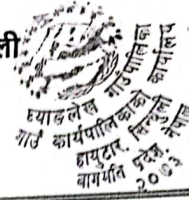 ली
घ्याङलेख गाउँपालिका
गाउँ कार्यपालिकाको कार्यालय
हायुटार, सिन्धुली
बागमती प्रदेश, नेपाल
२०७३